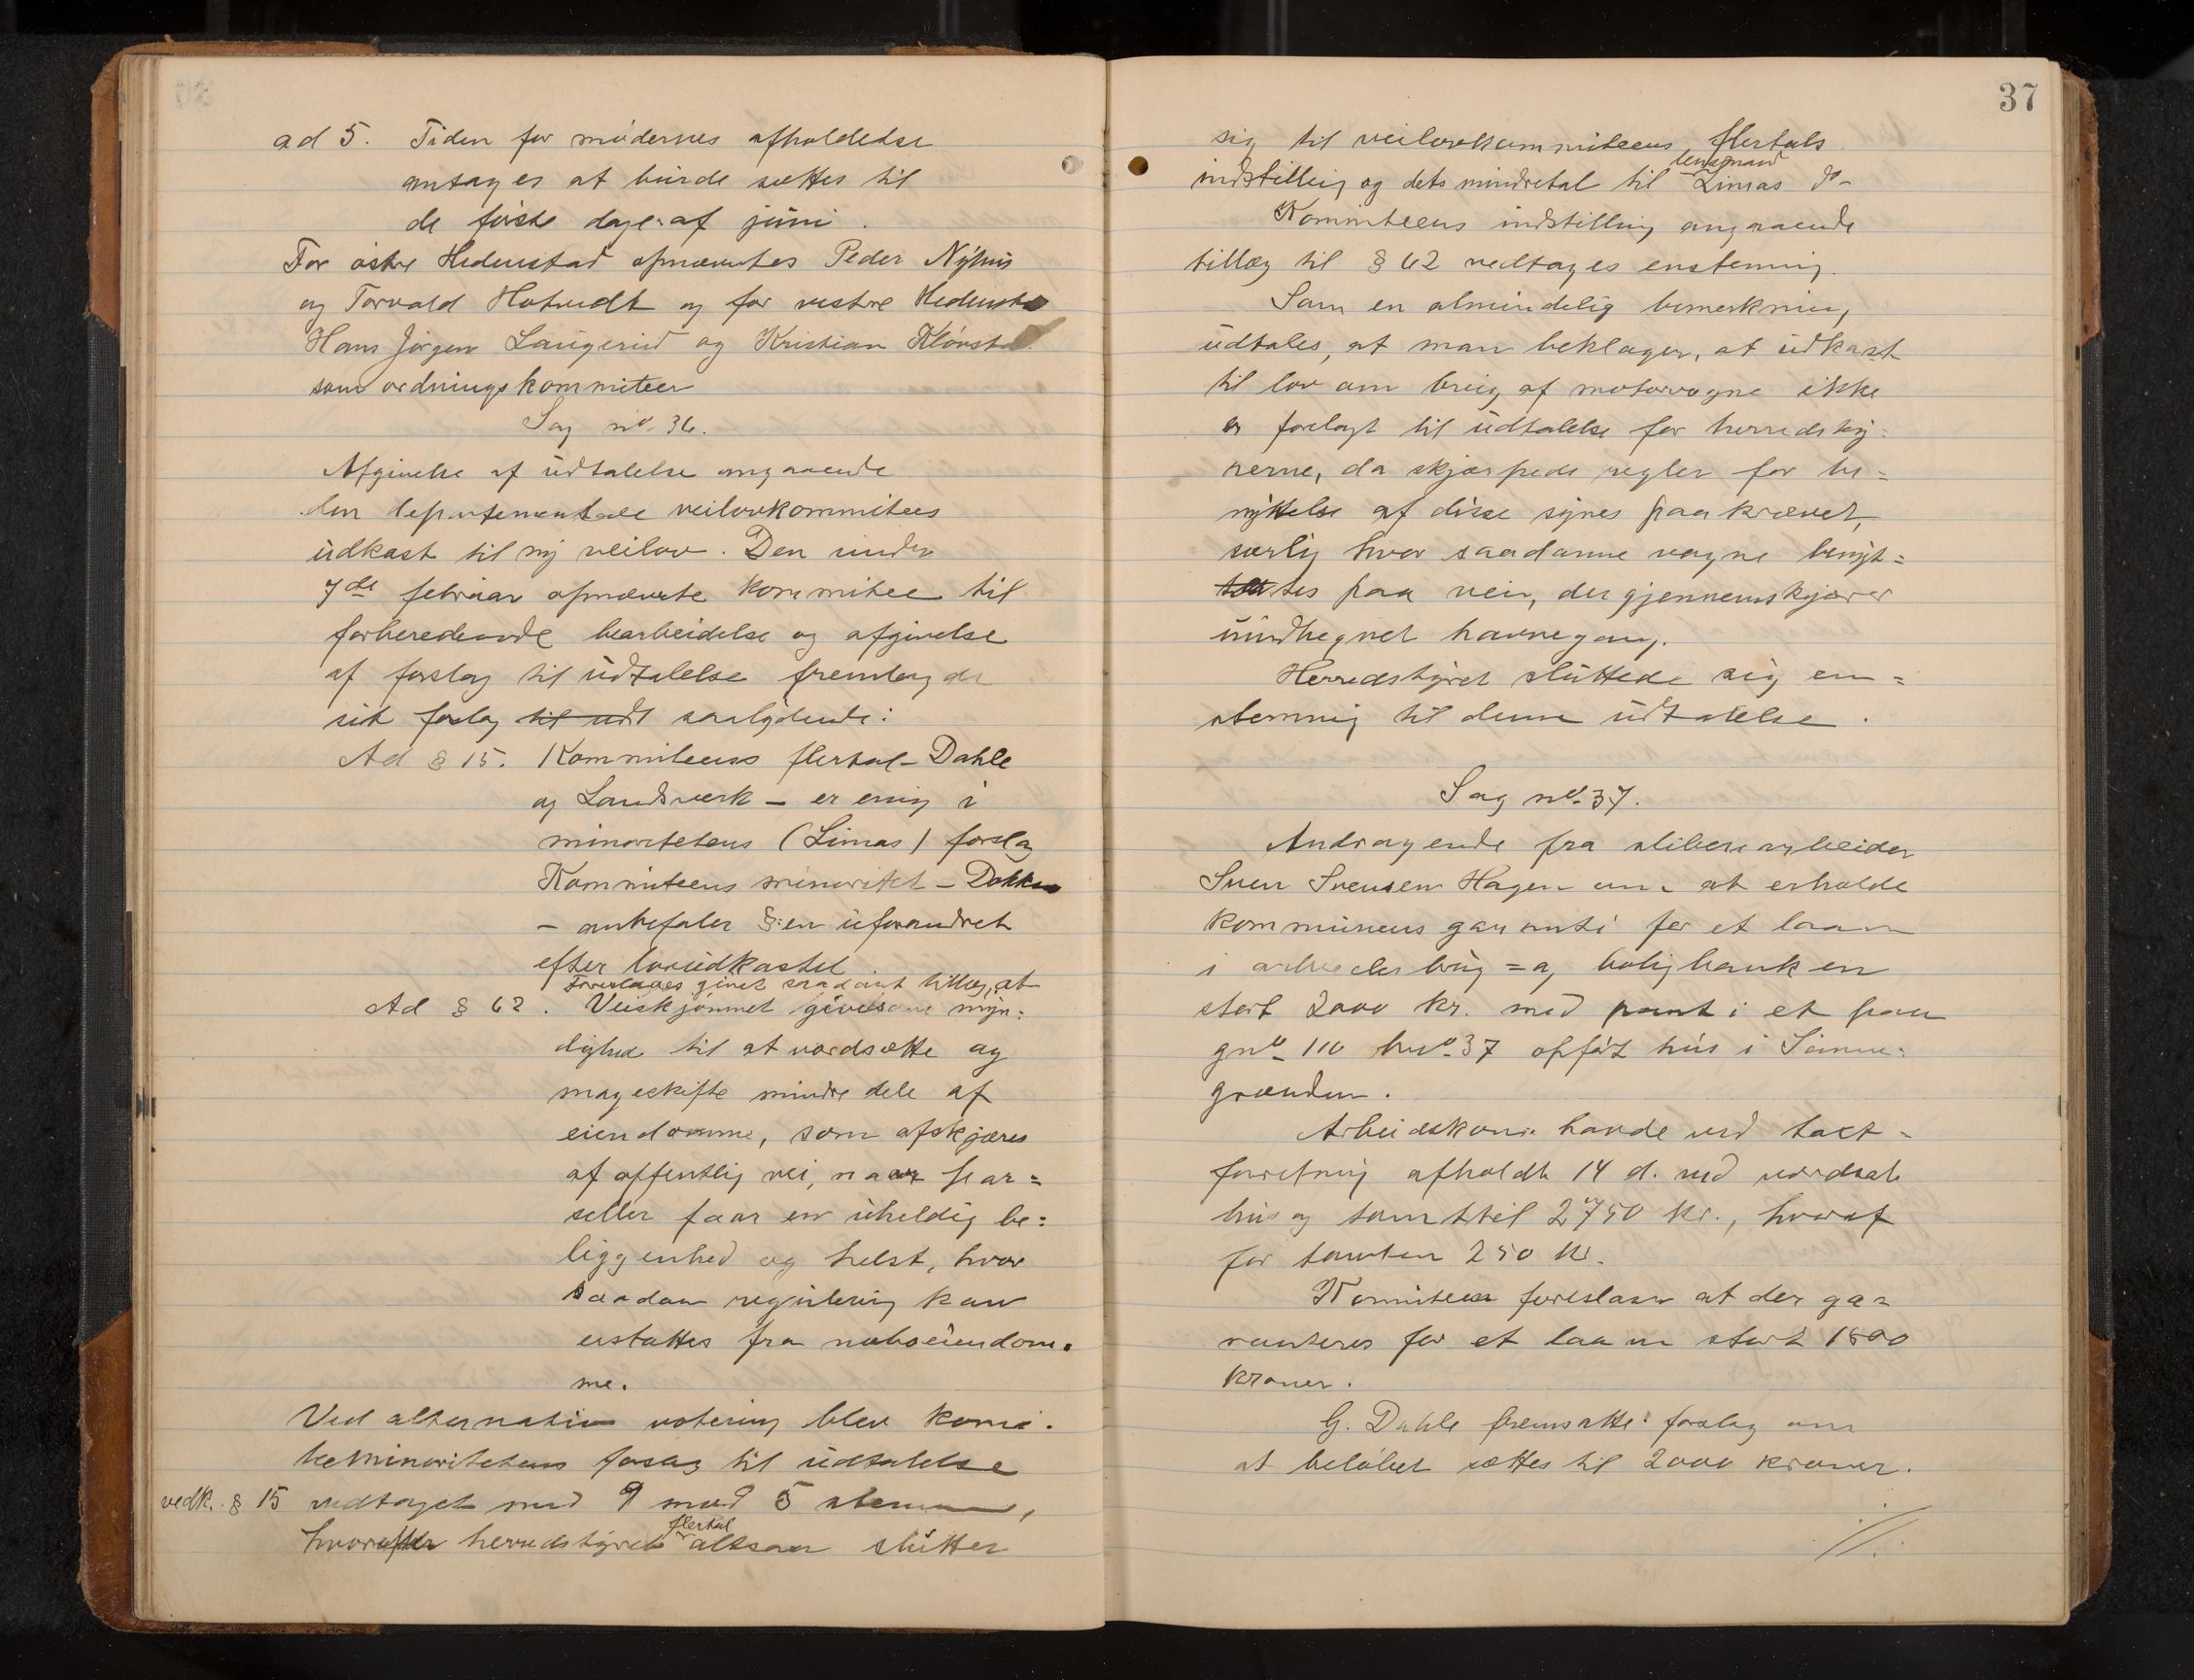 ad 5. Tiden for mødernes afholdelse
antages at burde sættes til
de første dage af juni.
For østre Hedenstad opnævntes Peder Nyhus
og Torvald Hotvedt og for vestre Hedensta
Hans Jørgen Laugerud og Kristian Kløvsta
som ordningskommiteer
Sag no. 36.
Afgivelse af udtalelse angaaende
den departementale veilovkommitees
udkast til ny veilov. Den under
7de februar opnævnte kommitee til
forberedende bearbeidelse og afgivelse
af forslag til udtalelse fremlagde
sit forslag til udt saalydende:
Ad § 15. Kommiteens flertal – Dahle
og Landsværk – er enig i
minoritetens (Limas) forslag
Kommiteens minoritet – Dokken
– anbefaler §:en uforandret
efter lovudkastet.
Foreslages givet saadant tillæg, at
Ad § 62. Veiskjønnet gives myn=
dighed til at værdsætte og
mageskifte mindre dele af
eiendomme, som afskjæres
af offentlig vei, naar par=
seller faar en uheldig be=
liggenhed og helst, hvor
saadan regulering kan
erstattes fra naboeiendom=
me.
Ved alternativ votering blev komi=
teminoritetens forslag til udtalelse
vedk. § 15 vedtaget med 9 mod 5 stemmer,
flertal
hvorefter herredstyrets altsaa slutter
37
sig til veilovkommiteens flertals
lensmand
indstilling og dets mindretal til Limas do-
Kommiteens indstilling angaaende
tillæg til § 62 vedtages enstemmig.
Som en almindelig bemerkning,
udtales, at man beklager, at udkast
til lov om brug af motorvogne ikke
er forelagt til udtalelse for herredsty=
rerne, da skjærpede regler for be=
nyttelse af disse synes paakrævet,
særlig hvor saadanne vogne benyt=
tes paa vein, der gjennemskjærer
uindhegnet havnegang.
Herredstyret sluttede sig en=
stemmig til denne udtalelse.
Sag no. 37.
Andragende fra sliberiarbeider
Sven Svensen Hagen om at erholde
kommunens garanti for et laan
i arbeiderbrug= og boligbanken
stort 2000 kr. med pant i et paa
gno. 110 bno. 37 opført hus i
grænden.
Arbeidskom. havde ved taxt=
forretning afholdt 14 d. md værdsat
hus og tomt til 2750 kr., hvoraf
for tomten 250 kr.
Komiteen foreslaar at der ga=
ranteres for et laan stort 1800
kroner.
G. Dahle fremsatte forslag om
at beløbet sættes til 2000 kroner.
./.